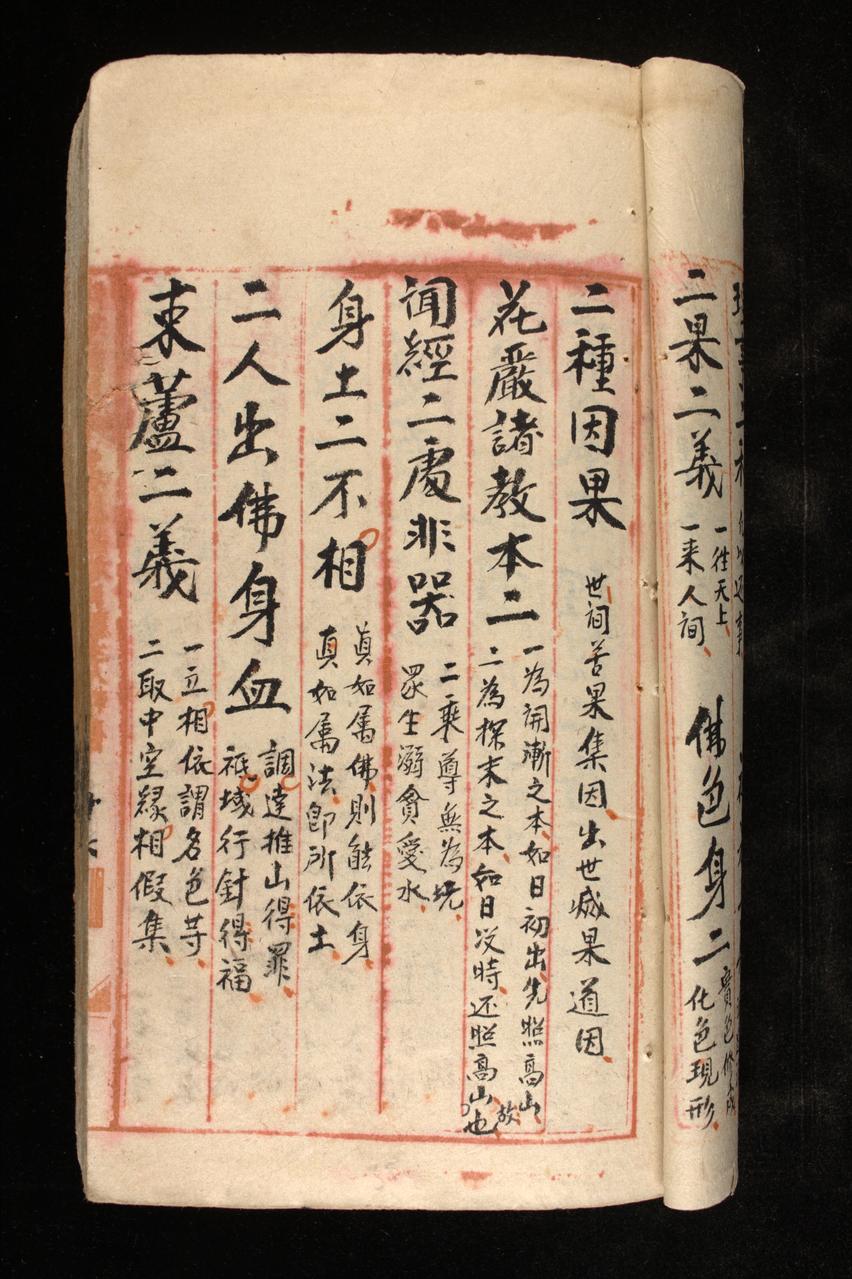 二果二義 一往天上、
一来人间、
佛色身二 實色修成
化色現形、
二種因果 世间苦果集因、出世滅果道因、
花嚴諸教本二 一為開漸之本、如日初出、先照高山、故
二為探末之本、如日没時、还照高山也、
闻經二處非器 二乘導無為坑、
眾生溺貪愛水、
身土二不相 真如属佛、則能依身、
真如属法、即所依土、
二人出佛身血 調達推山得罪、
祇域行針得福、
束蘆二義 一立相依謂名色等、
二取中空緣相假集、